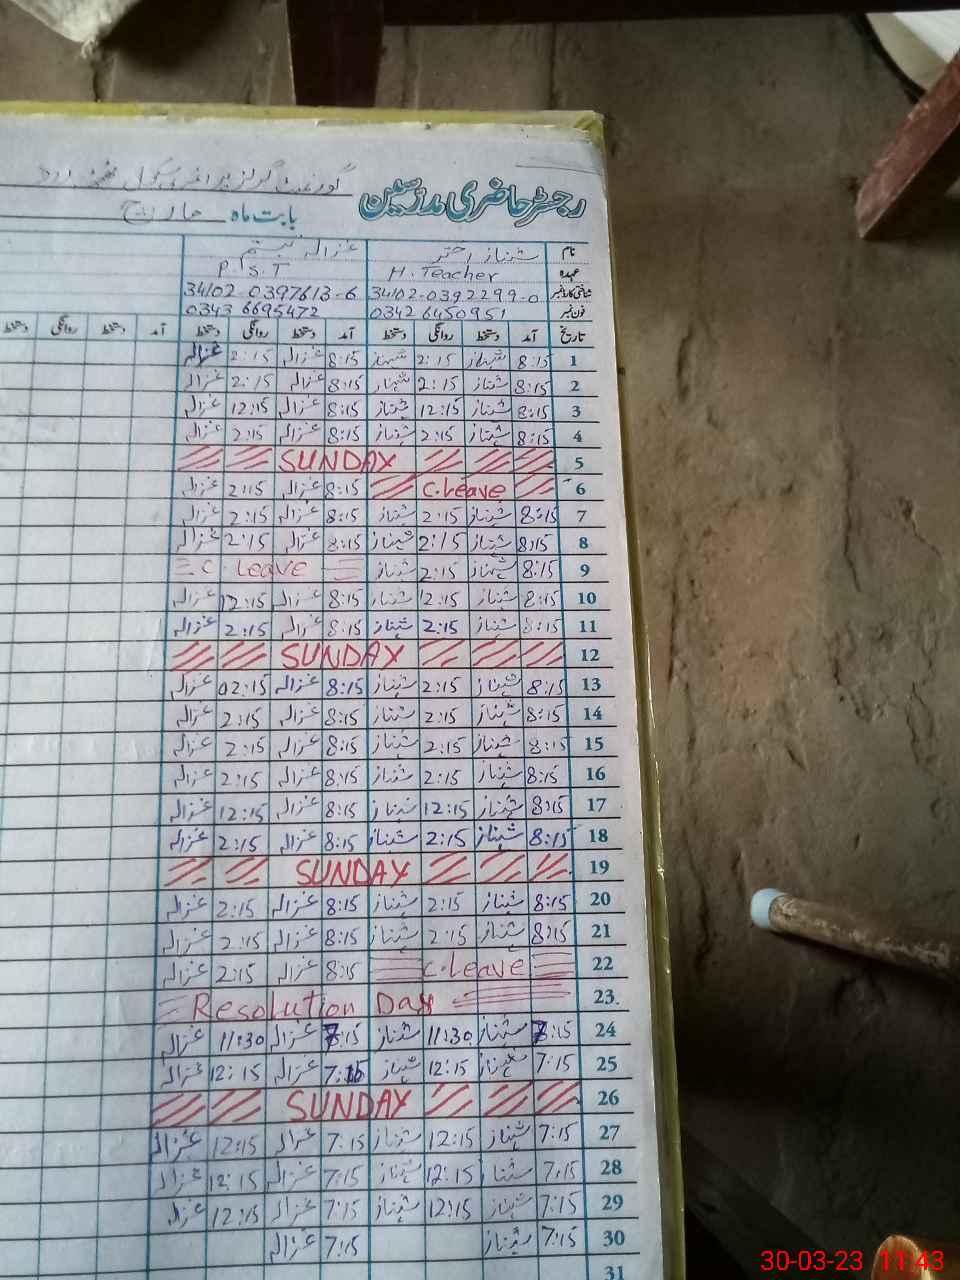 گورنمنٹ گرلز پرائمری سکول
رجسٹر حاضری مدرسین
بابت ماہ مارچ
نام شہناز اختر غزالہ تبسم
عہدہ H. Teacher P.S.T
شناختی کارڈ نمبر 34102-0392299-0 34102-0397613-6
فون نمبر 0342 6450951 0343 6695472
تاریخ آمد دستخط روانگی دستخط آمد دستخط روانگی دستخط آمد دستخط روانگی دستخط
1 8:15 شہناز 2:15 شہناز 8:15 غزالہ 2:15 غزالہ
2 8:15 شہناز 2:15 شہناز 8:15 غزالہ 2:15 غزالہ
3 8:15 شہناز 12:15 شہناز 8:15 غزالہ 12:15 غزالہ
4 8:15 شہناز 2:15 شہناز 8:15 غزالہ 2:15 غزالہ
5 SUNDAY
6 C.Leave 8:15 غزالہ 2:15 غزالہ
7 8:15 شہناز 2:15 شہناز 8:15 غزالہ 2:15 غزالہ
8 8:15 شہناز 2:15 شہناز 8:15 غزالہ 2:15 غزالہ
9 8:15 شہناز 2:15 شہناز C. Leave
10 8:15 شہناز 12:15 شہناز 8:15 غزالہ 12:15 غزالہ
11 8:15 شہناز 2:15 شہناز 8:15 غزالہ 2:15 غزالہ
12 SUNDAY
13 8:15 شہناز 2:15 شہناز 8:15 غزالہ 02:15 غزالہ
14 8:15 شہناز 2:15 شہناز 8:15 غزالہ 2:15 غزالہ
15 8:15 شہناز 2:15 شہناز 8:15 غزالہ 2:15 غزالہ
16 8:15 شہناز 2:15 شہناز 8:15 غزالہ 2:15 غزالہ
17 8:15 شہناز 12:15 شہناز 8:15 غزالہ 12:15 غزالہ
18 8:15 شہناز 2:15 شہناز 8:15 غزالہ 2:15 غزالہ
19 SUNDAY
20 8:15 شہناز 2:15 شہناز 8:15 غزالہ 2:15 غزالہ
21 8:15 شہناز 2:15 شہناز 8:15 غزالہ 2:15 غزالہ
22 C.Leave 8:15 غزالہ 2:15 غزالہ
23. Resolution Day
24 8:15 شہناز 11:30 شہناز 8:15 غزالہ 11:30 غزالہ
25 7:15 شہناز 12:15 شہناز 7:15 غزالہ 12:15 غزالہ
26 SUNDAY
27 7:15 شہناز 12:15 شہناز 7:15 غزالہ 12:15 غزالہ
28 7:15 شہناز 12:15 شہناز 7:15 غزالہ 12:15 غزالہ
29 7:15 شہناز 12:15 شہناز 7:15 غزالہ 12:15 غزالہ
30 7:15 شہناز 7:15 غزالہ
31
30-03-23 11:43